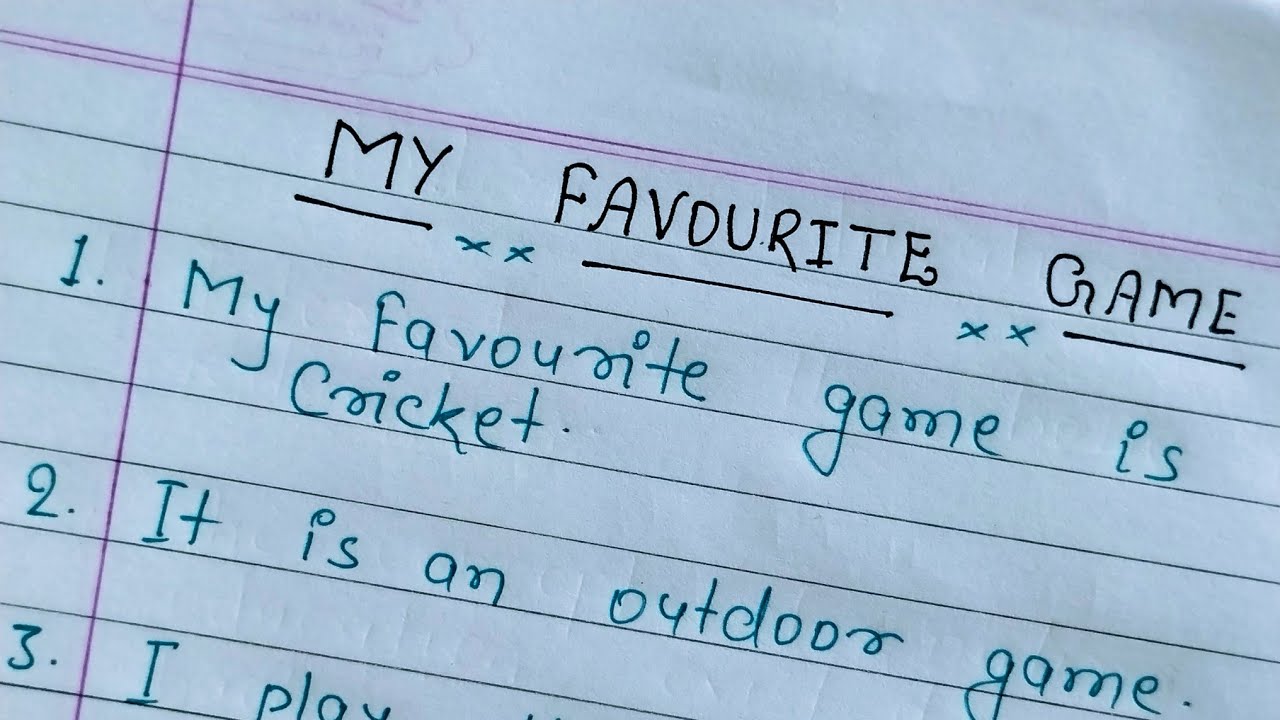 MY FAVOURITE GAME
1. My favourite game is
Cricket.
2. It is an outdoor game.
3. I play